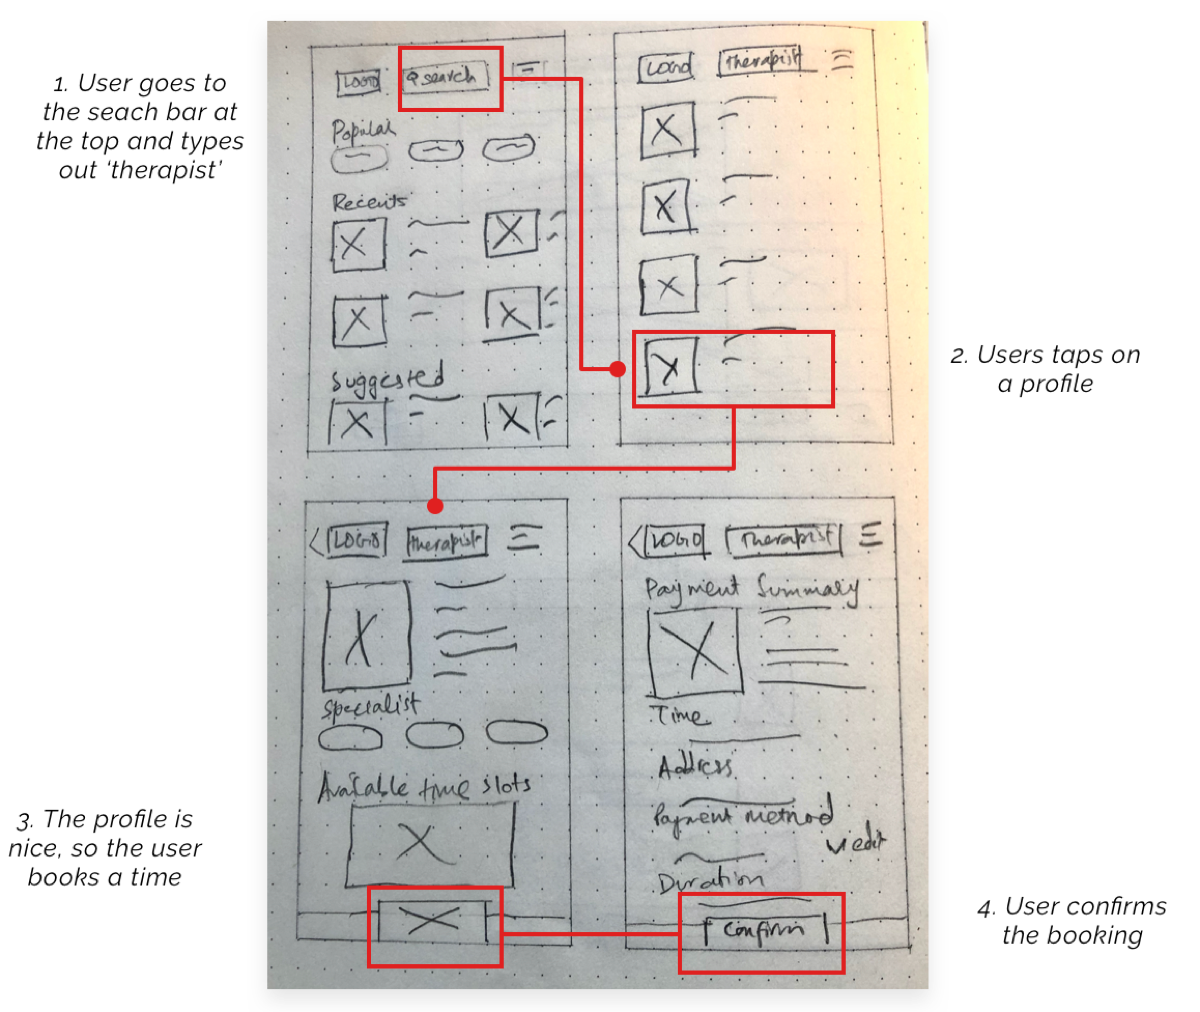 1. User goes to
the seach bar at
the top and types
out ‘therapist’
LOGO
search
Popular
Recents
Suggested
LOGO
therapist
2. Users taps on
a profile
LOGO
therapist
Specialist
Available time slots
3. The profile is
nice, so the user
books a time
LOGO
Therapist
Payment Summary
Time
Address
Payment method
edit
Duration
Confirm
4. User confirms
the booking